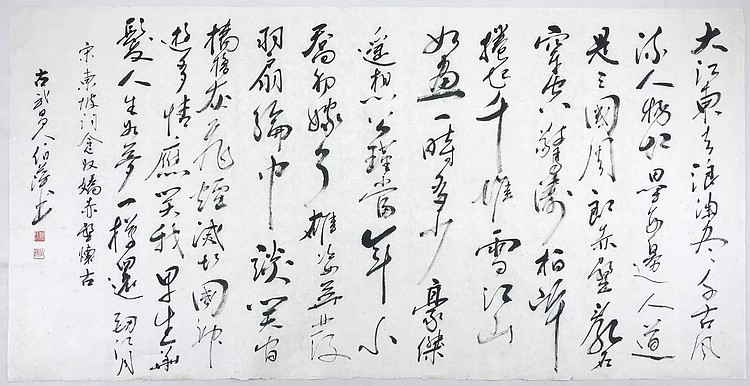 大江東去浪淘尽千古風
流人物故壘西邊人道
是三國周郎赤壁亂石
穿空驚濤拍岸
捲起千堆雪江山
如畫一時多少豪傑
遥想公瑾當年小
喬初嫁了雄姿英發
羽扇綸巾談笑間
檣櫓灰飛煙滅故國神
遊多情應笑我早生華
髮人生如夢一樽還酹江月
宋東坡詞念奴嬌赤壁懷古
古武昌人伯書